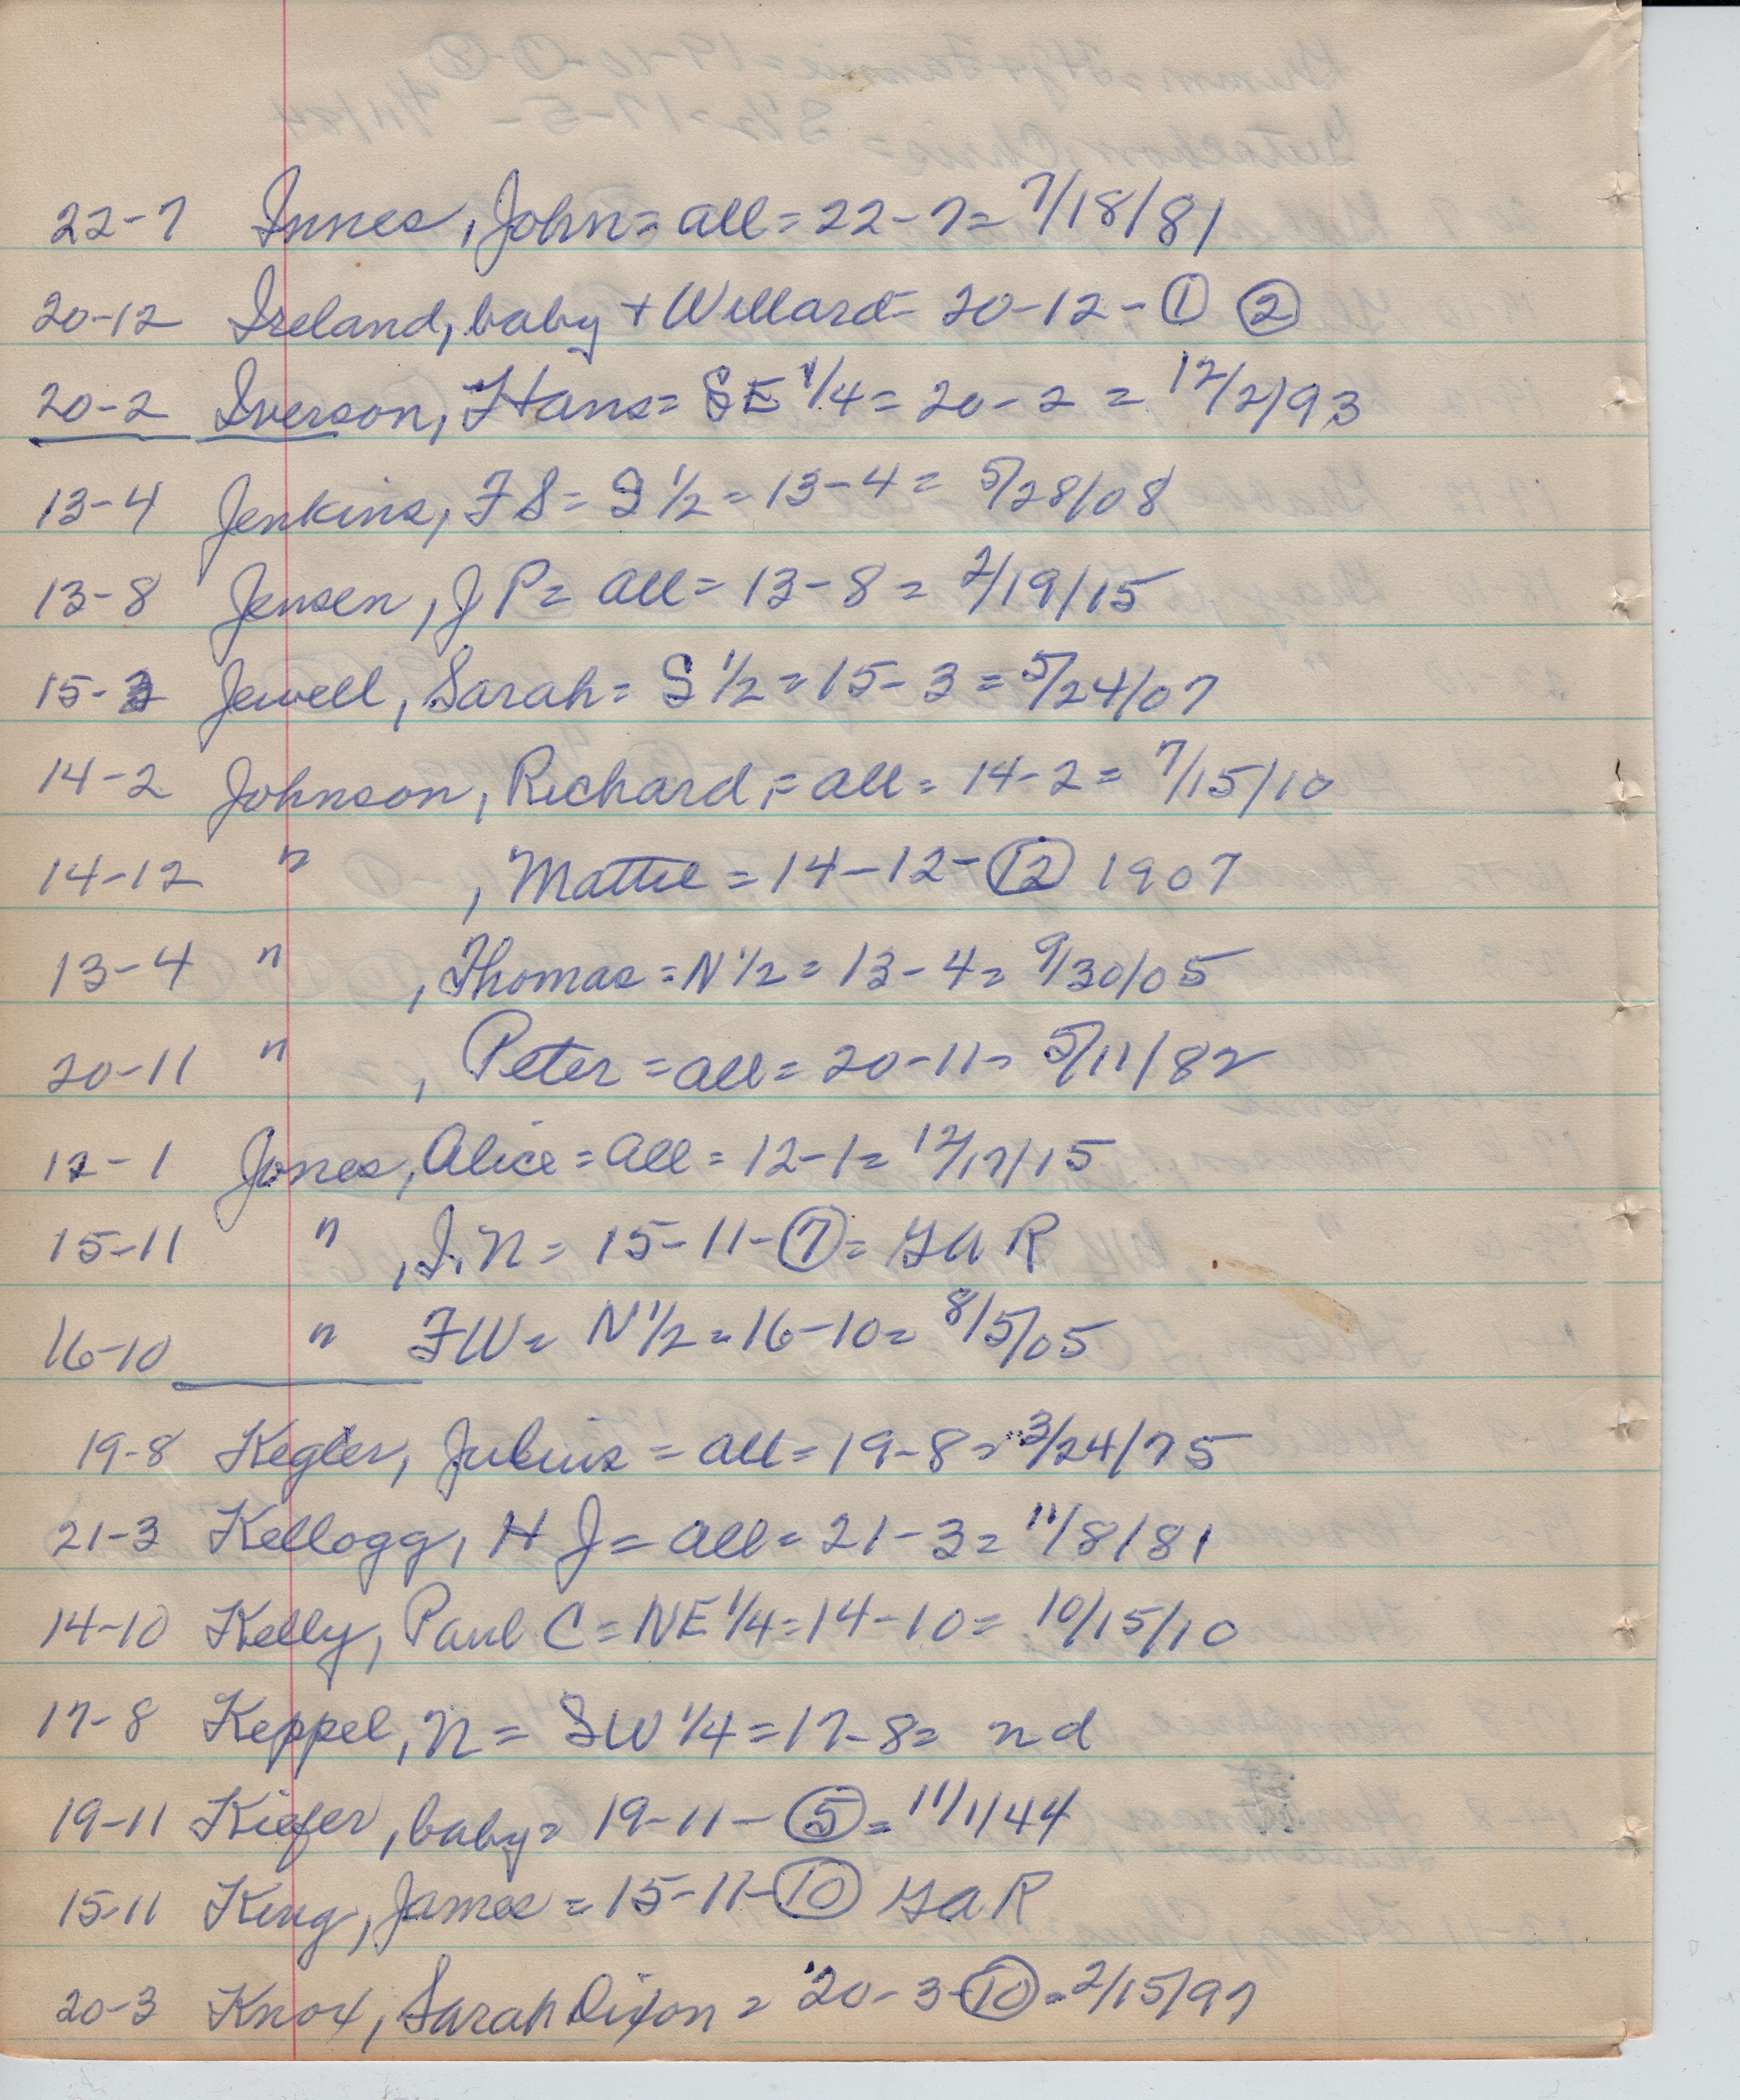 22-7 Innes, John = all = 22-7 = 7/18/81
20-12 Ireland, baby + Willard = 20-12- ① ②
20-2 Iverson, Hans = SE 1/4 = 20-2 = 12/2/93
13-4 Jenkins, F S = S 1/2 = 13-4 = 5/28/08
13-8 Jensen, J P = all = 13-8 = 2/19/15
15-3 Jewell, Sarah = S 1/2 = 15-3 = 5/24/07
14-2 Johnson, Richard, = all = 14-2 = 7/15/10
14-12 " , Mattie = 14-12- ⑫ 1907
13-4 " , Thomas = N 1/2 = 13-4 = 9/30/05
20-11 " , Peter = all = 20-11 = 5/11/82
12-1 Jones, Alice = all = 12-1 = 12/17/15
15-11 " , I. N = 15-11- ⑦ = G A R
16-10 " F W = N 1/2 = 16-10 = 8/5/05
19-8 Kegler, Julius = all = 19-8 = 3/24/75
21-3 Kellogg, H J = all = 21-3 = 11/8/81
14-10 Kelly, Paul C = NE 1/4 = 14-10 = 10/15/10
17-8 Keppel, N = SW 1/4 = 17-8 = n d
19-11 Kiefer, baby = 19-11- ⑤ = 11/1/44
15-11 King, James = 15-11- ⑩ G A R
20-3 Knox, Sarah Dixon = 20-3- ⑩ = 2/15/97